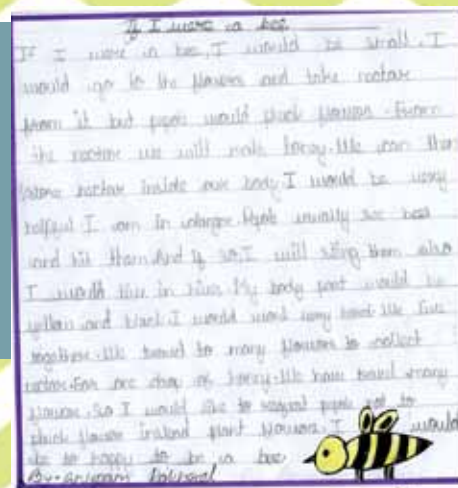 If I were a bee
If I were a bee, I would be small. I
would go to the flowers and take nectar
from it but would pluck flowers. From
the nectar we will make honey. We can then
store nectar inside our body. I would be very
helpful I am in danger. usually see bees
and hit them. And if so, I will sting them also
I would live in hive. My body part would be
yellow and black. I would work very hard. We live
together. We travel to many flowers to collect
nectar. For one drop of honey. We have travel many
flowers. So I would like to request not to
pluck flower instead plant flowers. I would
like to happy to be a bee
By:-